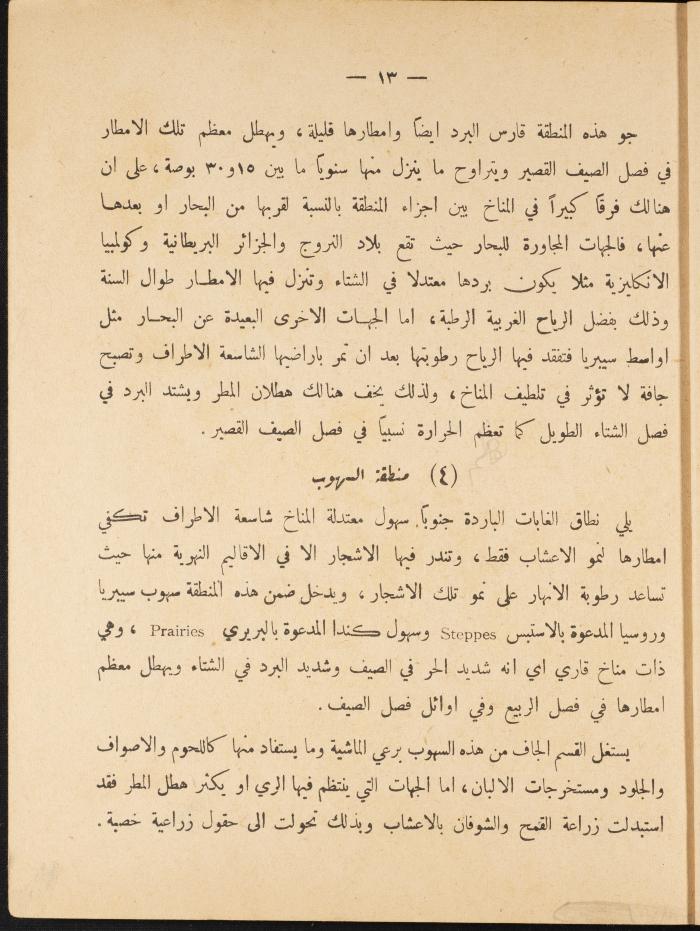 — ١٣ —
جو هذه المنطقة قارس البرد ايضاً وامطارها قليلة ، ويهطل معظم تلك الامطار
في فصل الصيف القصير ويتراوح ما ينزل منها سنوياً ما بين ١٥ و ٣٠ بوصة ، على ان
هنالك فرقاً كبيراً في المناخ بين اجزاء المنطقة بالنسبة لقربها من البحار او بعدهـا
عنها ، فالجهات المجاورة للبحار حيث تقع بلاد النروج والجزائر البريطانية وكولمبيا
الانكليزية مثلا يكون بردها معتدلا في الشتاء وتنزل فيها الامطـار طوال السنة
وذلك بفضل الرياح الغربية الرطبة ، اما الجهـات الاخرى البعيدة عن البحـار مثل
اواسط سيبريا فتفقد فيها الرياح رطوبتها بعد ان تمر باراضيها الشاسعة الاطراف وتصبح
جافة لا تؤثر في تلطيف المناخ ، ولذلك يخف هنالك هطلان المطر ويشتد البرد في
فصل الشتاء الطويل كما تعظم الحرارة نسبياً في فصل الصيف القصير .
(٤) منطقة السهوب
يلي نطاق الغابات الباردة جنوباً. سهول معتدلة المناخ شاسعة الاطراف تكفي
امطارها لنمو الاعشاب فقط ، وتندر فيها الاشجار الا في الاقاليم النهرية منها حيث
تساعد رطوبة الانهار على نمو تلك الاشجار ، ويدخل ضمن هذه المنطقة سهوب سيبريا
وروسيا المدعوة بالاستبس Steppes وسهول كندا المدعوة بالبريري Prairies ، وهي
ذات مناخ قاري اي انه شديد الحر في الصيف وشديد البرد في الشتاء ويهطل معظم
امطارها في فصل الربيع وفي اوائل فصل الصيف .
يستغل القسم الجاف من هذه السهوب برعي الماشية وما يستفاد منها كاللحوم والاصواف
والجلود ومستخرجات الالبان ، اما الجهات التي ينتظم فيها الري او يكثر هطل المطر فقد
استبدلت زراعة القمح والشوفان بالاعشاب وبذلك تحولت الى حقول زراعية خصبة .